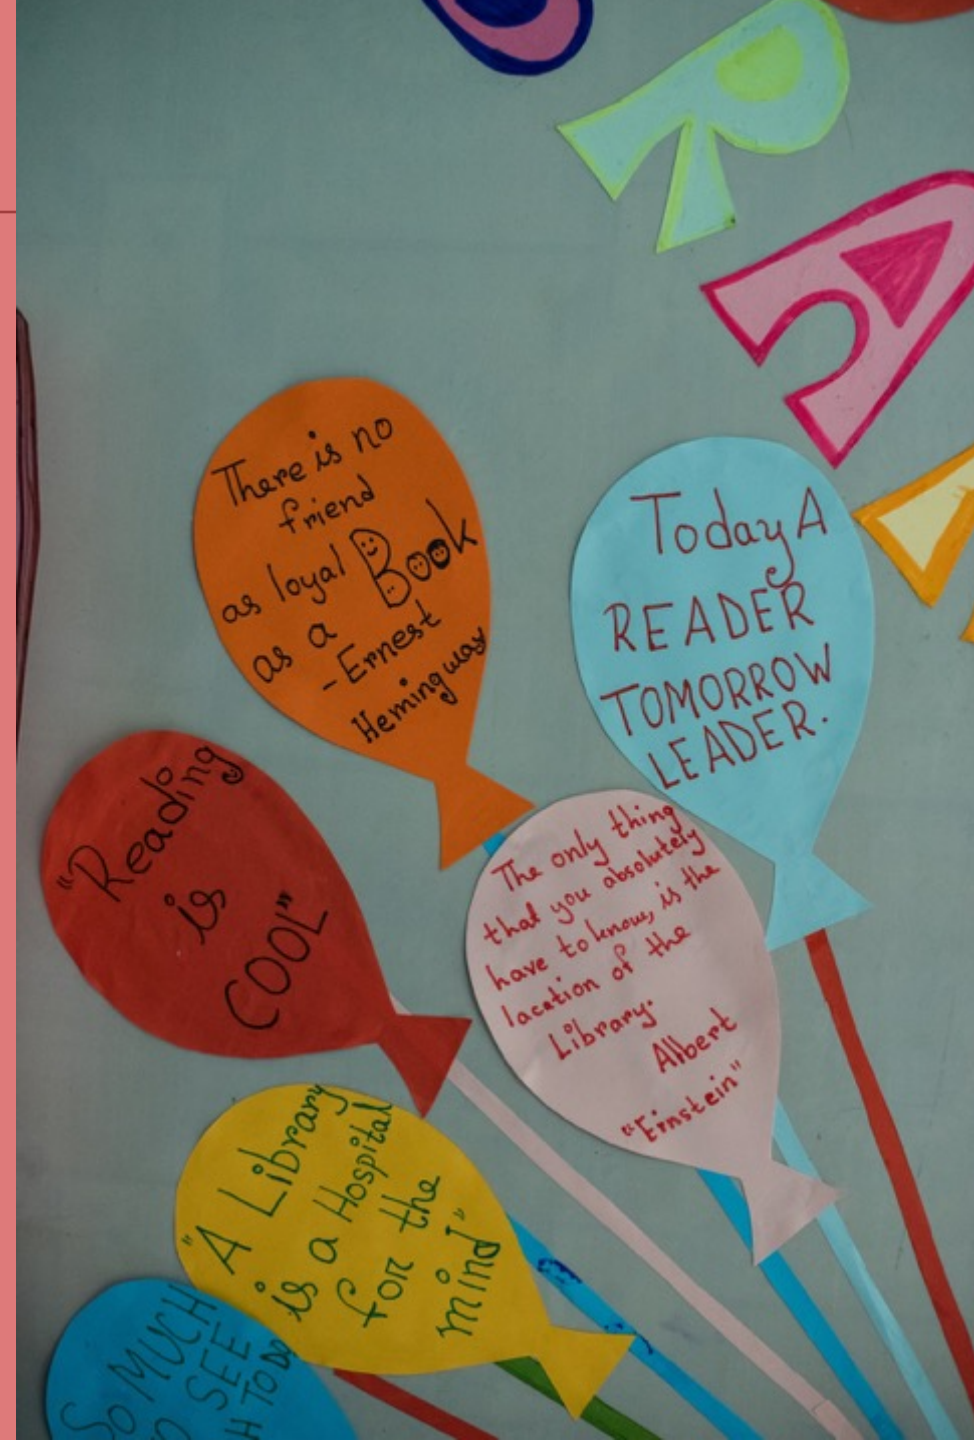 R
A
There is no
friend
as loyal Book
as a
-Ernest
Hemingway
Today A
READER
TOMORROW
LEADER.
"Reading
is
COOL"
The only thing
that you absolutely
have to know, is the
lacation of the
Library.
Albert
"Eirnstein"
"A Library
is a Hospital
for the
mind"
SO MUCH
SEE